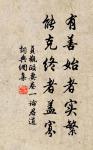 有善始者实繁
能克终者盖寡
贞观政要卷一论君道
词典网集